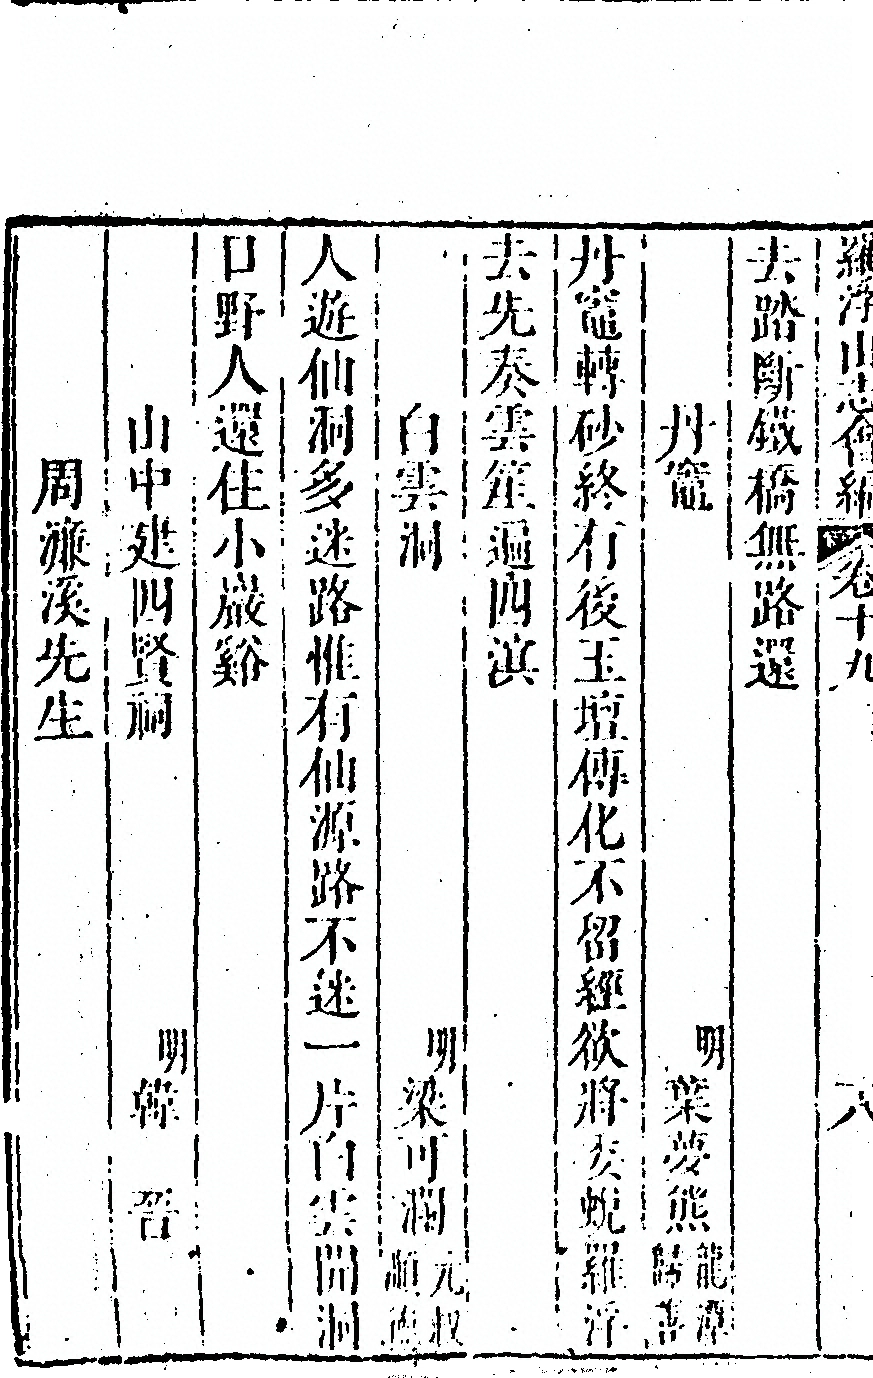 羅浮山志會編 卷十九 八
去踏斷鐵橋無路還
丹竈 明葉夢熊龍潭歸善
丹竈轉砂終有後玉壇傳化不留經欲將委蛻羅浮
去先奏雲笙遍四滇
白雲洞 明梁可瀾元叔順德
人遊仙洞多迷路惟有仙源路不迷一片白雲開洞
口野人還住小巖谿
山中建四賢祠 明韓晉
周濂溪先生